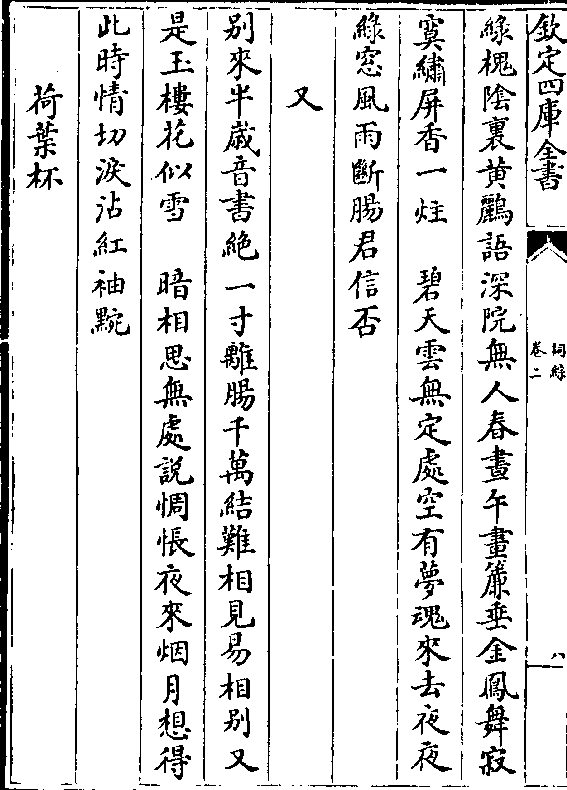 欽定四庫全書
詞綜
卷二
八
綠槐陰裏黄鸝語深院無人春晝午畫簾垂金鳳舞寂
寞繡屏香一炷　碧天雲無定處空有夢魂來去夜夜
綠窓風雨斷腸君信否
又
别來半歳音書絶一寸離腸千萬結難相見易相别又
是玉樓花似雪　暗相思無處説惆悵夜來烟月想得
此時情切淚沾紅袖黦
荷葉杯